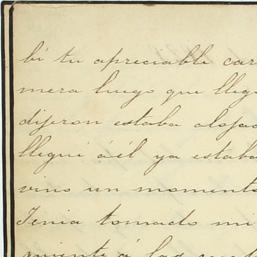 bí tu apreciable car
mera luego que lleg
dijeron estaba aloja
llegué á él ya estaba
vino un momento
Tenia tomado mi